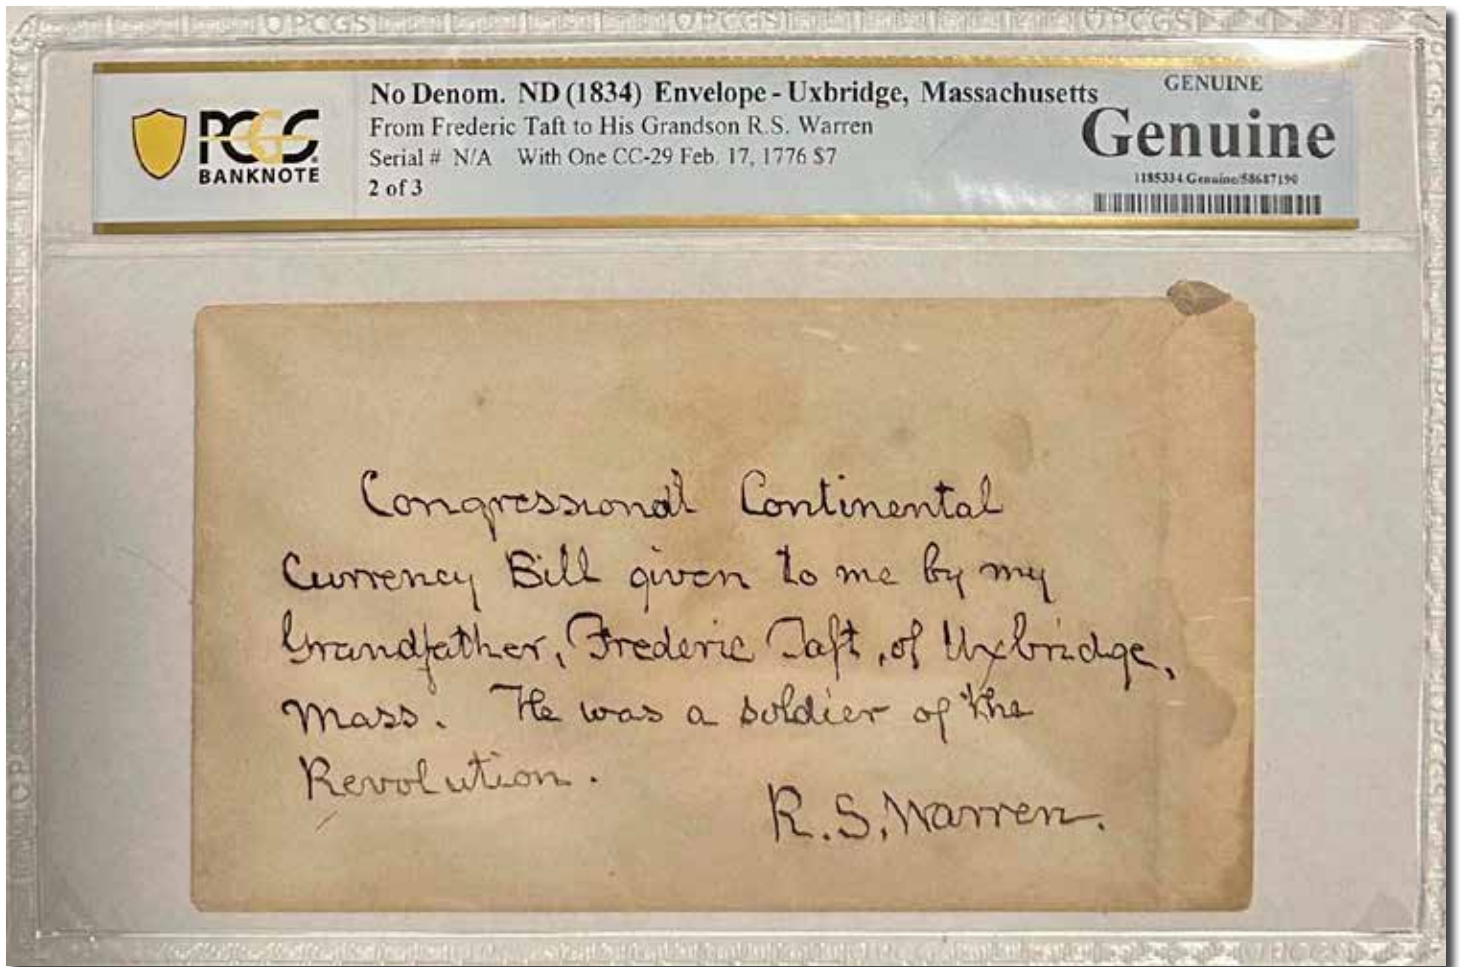 No Denom. ND (1834) Envelope - Uxbridge, Massachusetts
From Frederic Taft to His Grandson R.S. Warren
Serial # N/A With One CC-29 Feb. 17, 1776 $7
2 of 3
PCGS
BANKNOTE
GENUINE
Genuine
1185334.Genuine/58687190
Congressional Continental
Currency Bill given to me by my
Grandfather, Frederic Taft, of Uxbridge,
Mass. He was a soldier of the
Revolution.
R.S. Warren.